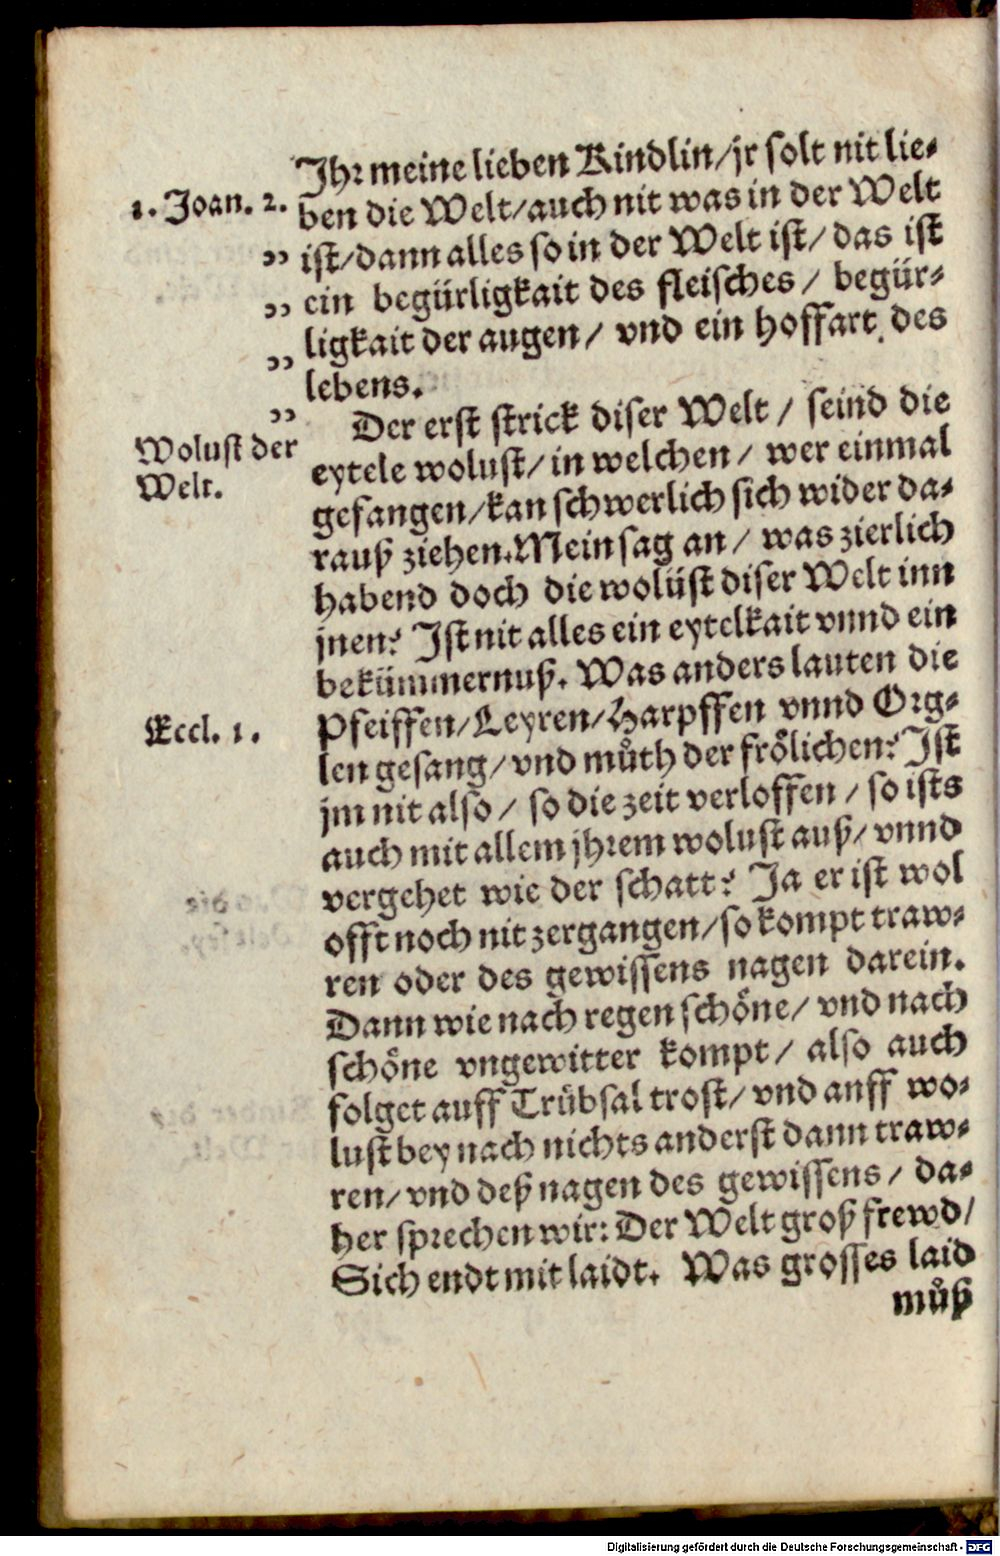 Ihr meine lieben Kindlin/jr solt nit lie-
1. Joan. 2. ben die Welt/auch nit was in der Welt
„ ist/dann alles so in der Welt ist/ das ist
„ ein begürligkait des fleisches / begür-
„ ligkait der augen/ vnd ein hoffart des
„ lebens.
Der erst strick diser Welt / seind die
Wolust der
Welt.
eytele wolust/in welchen/ wer einmal
gefangen/kan schwerlich sich wider da-
rauß ziehen. Mein sag an / was zierlich
habend doch die wolüst diser Welt inn
jnen? Ist nit alles ein eytelkait vnnd ein
bekümmernuß. Was anders lauten die
Eccl. 1. Pfeiffen/Leyren/Harpffen vnnd Org-
len gesang/vnd muͦth der froͤlichen? Ist
jm nit also / so die zeit verloffen / so ists
auch mit allem jhrem wolust auß/ vnnd
vergehet wie der schatt? Ja er ist wol
offt noch nit zergangen/so kompt traw-
ren oder des gewissens nagen darein.
Dann wie nach regen schoͤne/ vnd nach
schoͤne vngewitter kompt/ also auch
folget auff Truͤbsal trost/ vnd anff wo-
lust bey nach nichts anderst dann traw-
ren/ vnd deß nagen des gewissens/ da-
her sprechen wir: Der Welt groß frewd/
Sich endt mit laidt. Was grosses laid
muͦß
Digitalisierung gefördert durch die Deutsche Forschungsgemeinschaft - DFG